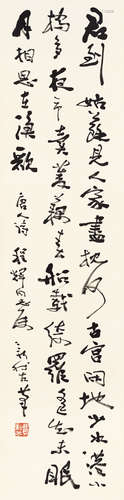 君到姑蘇見人家盡枕河古宮閒地少水港小
橋多夜市賣菱藕春船載綺羅遙知未眠
月相思在漁歌
唐人詩 程輝同志屬